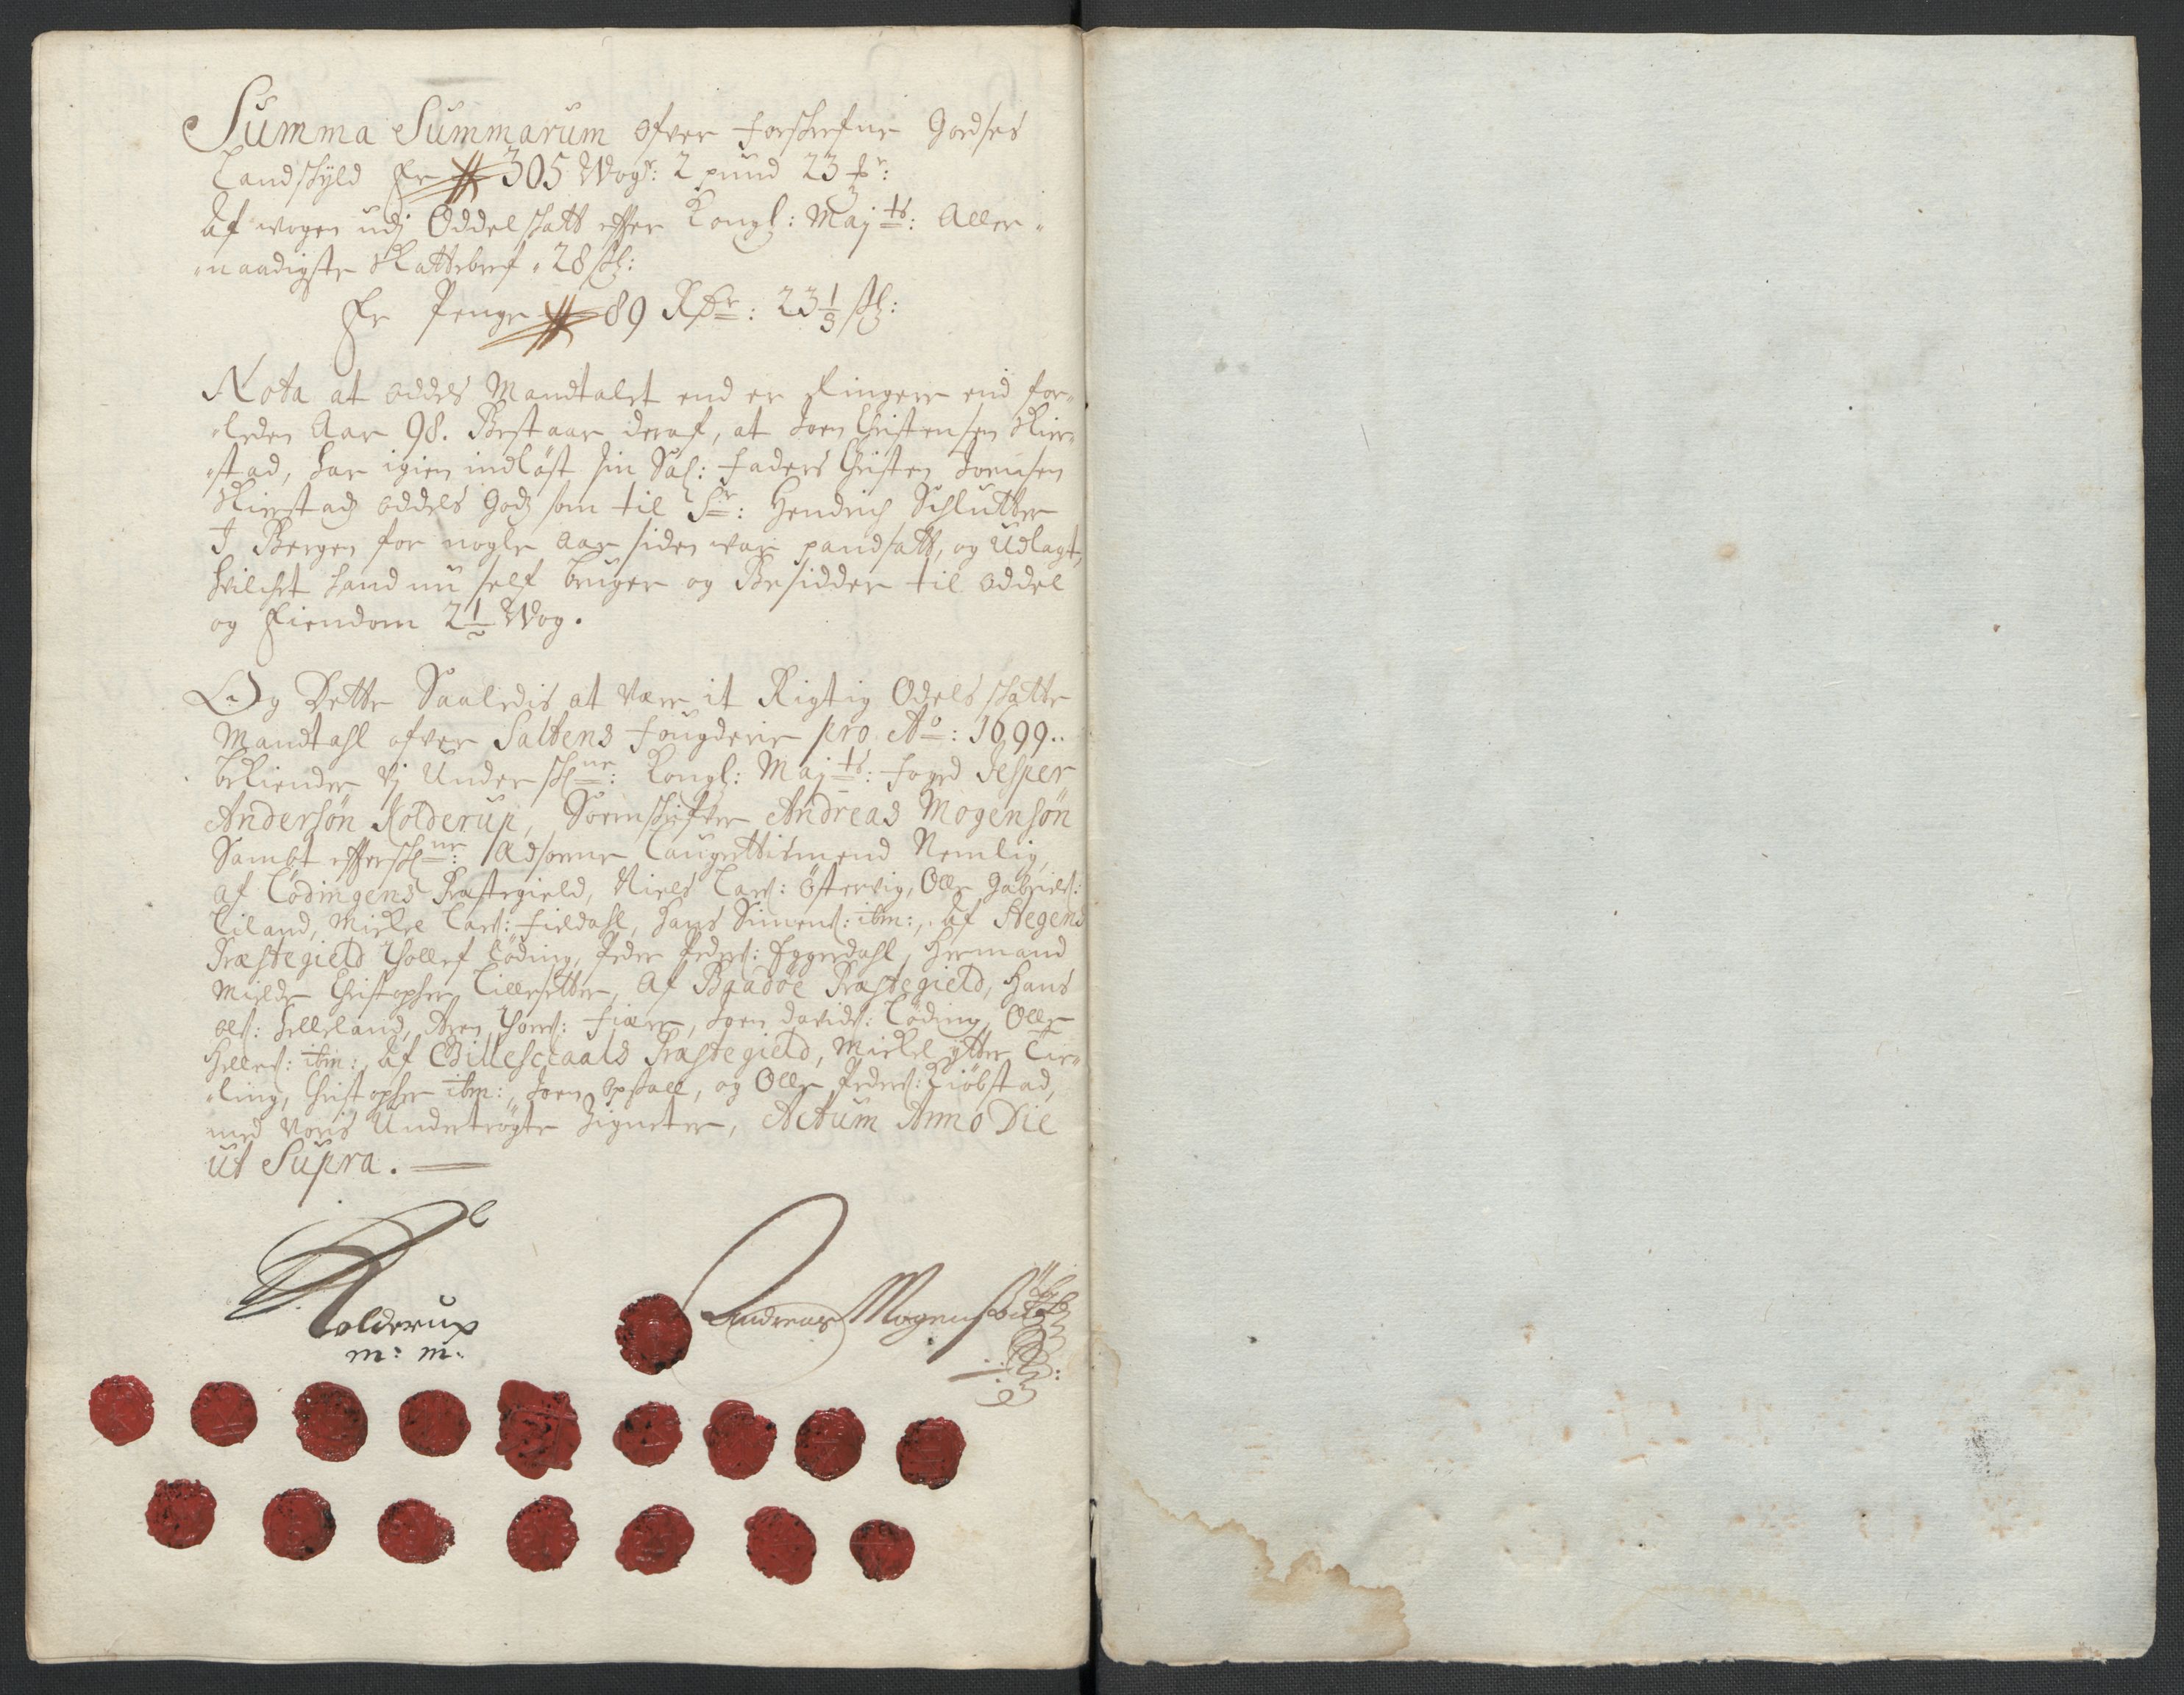 Summa Summarum ofver forschrefne Godses
Landschyld Er 305 Wogr: 2 pund 23
Af wogen udj Oddelschatt effter Kongl: Maj ts: Aller-
naadigste Skattebref 28 sk:
Er Penge 89 Rdr: 23 1/3 sk:
Nota at oddels Mandtalet end er Ringere end for-
leden Aar 98. Bestaar deraf, at Joen Christensen Kier-
stad, har igien indløst sin Sal: faders Christen Joensen
Kierstad oddels Godz som til Sr: Hendrich Schlutter
I Bergen for nogle Aar siden war pandsatt, og Udlagt,
hvilchet hand nu self bruger og Besidder til oddel
og Eiendom 2 1/2 Wog.
Og Dette Saaledis at være it Rigtig Odels schatte
Mandtahl ofver Saltens fougderie pro Ao: 1699..
bekiender Vj Undersch ne: Kongl: Maj ts: fogd Jesper
Andersøn Kolderup, Sorenschrifver Andreas Mogensøn
Sambt efftersch ne: Edsorne Laugrettismend Nemlig,
af Lødingens Præstegield, Niels Lars: Østervig, Olle Gabriels:
Liland, Mickel Lars: fieldahl, Hans Simens: ibm:, Af Stegens
Præstegield Thollef Løding, Peder Peders: Eggerdahl, Hermand
Mielde Christopher Lillesetter, Af Baadøe Præstegield, Hans
Ols: Helleland, Aren Thors: fiære, Joen Davids: Løding, Olle
Helles: ibm:, Af Gillesckaals Præstegield, Mickel ytter Lie-
ling, Christopher ibm:, Joen Opsall, og Olle Peders: Kiøbstad,
med Voris Undertrøgte Zigneter, Actum Anno Die
ut Supra.
Kolderup
m: m:
Andreas Mogensøn